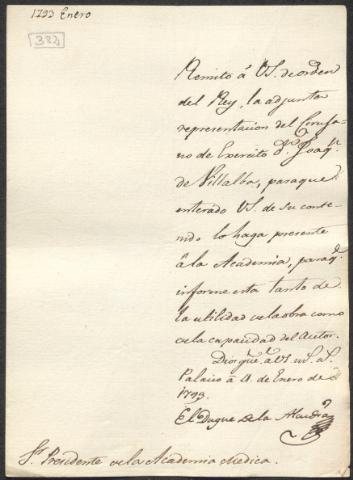 1793 Enero
324
Remito â VS. de orden
del Rey, la adjunta
representacion del Ciruja-
no de Exercito Dn. Joaqn.
de Villalba, paraque
enterado VS. de su conte-
nido lo haga presente
â la Academia, paraqe.
informe esta tanto de
la utilidad de la obra como
de la capacidad del Autor.
Dios gue. â VS. ms. as.
Palacio â 4 de Enero de
1793.
El Duque de la Alcudia
Sr. Presidente de la Academia Medica.